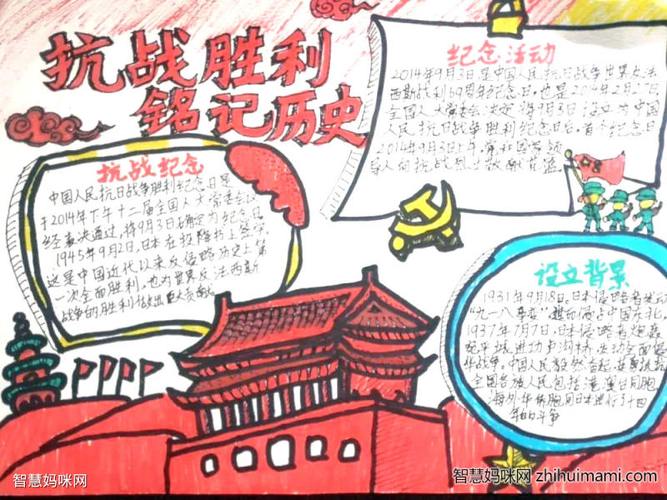 抗战胜利
铭记历史
纪念活动
2014年9月3日是中国人民抗日战争暨世界反法
西斯战利69周年纪念日,也是2014年2月27日
全国人大常委会决定将9月3日设立为中国
人民抗日战争胜利纪念日后,首个纪念日
2014年9月3日上午,党和国家领
导人向抗战烈士敬献花篮
抗战纪念
中国人民抗日战争胜利纪念日是
于2014年下午十二届全国人大常委会
经表决通过,将9月3日确定为纪念日
1945年9月2日,日本在投降书上签字
这是中国近代以来反侵略历史上第
一次全面胜利,也为世界反法西斯
战争的胜利做出巨大贡献
设立背景
1931年9月18日,日本侵略者发动
"九一八事变",占中国东北。
1937年7月7日,日本侵略者炮轰
宛平城进攻卢沟桥,发动全面侵
华战争。中国人民毅然奋起,
全国各族人民包括港澳台同胞
海外华侨同胞同日本进行了十四
年的斗争
智慧妈咪网
智慧妈咪网 zhihuimami.com